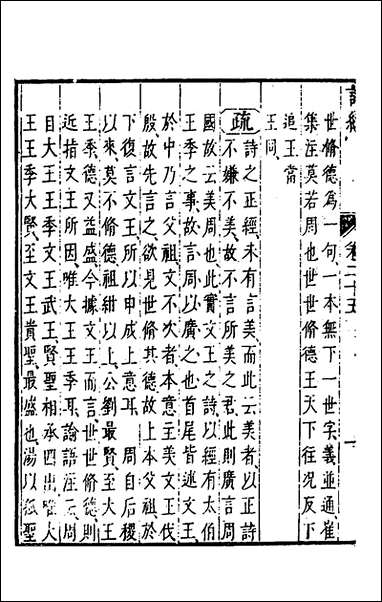 卷二十五
世脩德為一句一本無下一世字義並通崔
集注莫若周也世世脩德王天下往況反下
追王當
王同
疏 詩之正經未有言美而此云美者以正詩
不嫌不美故不言所美之君此則廣言周
國故云美周也此實文王之詩以經有太伯
王季之事故言周以廣之也首尾皆述文王
於中乃言父祖文不次者本意主美文王伐
殷故先言之欲見世脩其德故上本父祖於
下復言文王所以申成上意耳 周自后稷
以來莫不脩德祖紺以上公劉最賢至大王
王季德又益盛今據文王而言世世脩德則
近指文王所因唯大王王季耳論語注云周
自大王王季文王武王賢聖相承四世唯大
王王季大賢至文王貴聖最盛也湯以孫聖